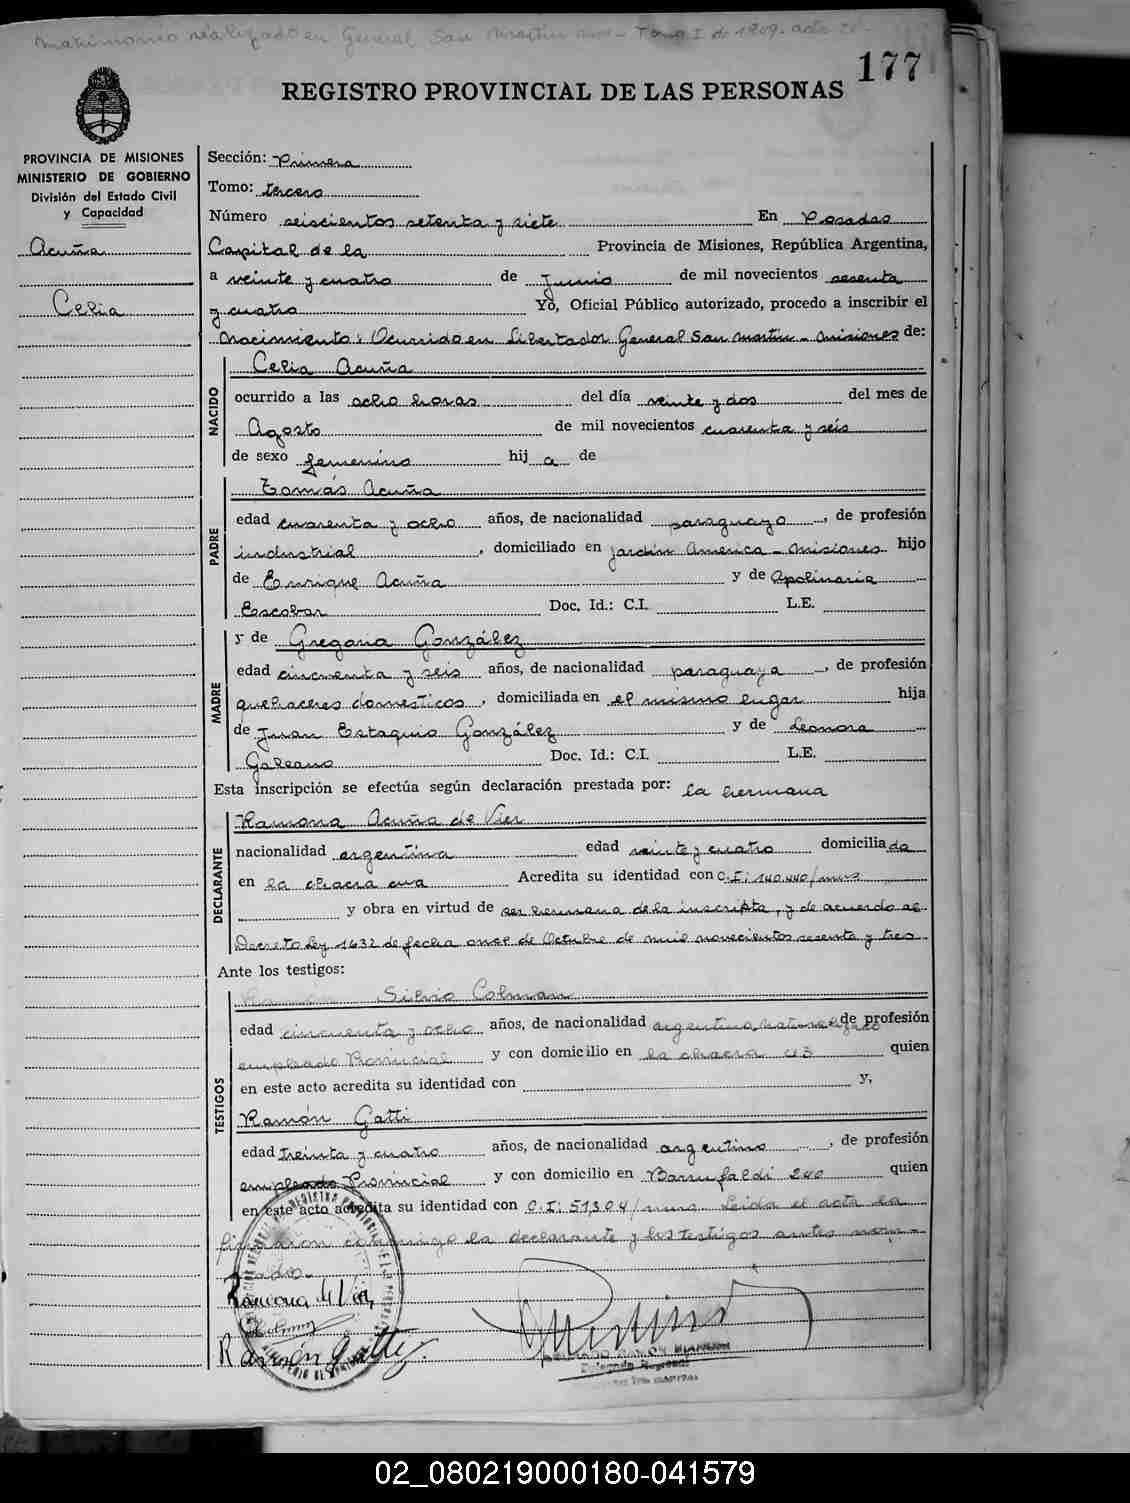 Matrimonio realizado en General San Martin
177
REGISTRO PROVINCIAL DE LAS PERSONAS
PROVINCIA DE MISIONES
MINISTERIO DE GOBIERNO
División del Estado Civil
y Capacidad
Acuña
Celia
Sección: Primera
Tomo: tercero
Número seiscientos setenta y siete En Posadas
Capital de la Provincia de Misiones, República Argentina,
a veinte y cuatro de Junio de mil novecientos sesenta
y cuatro Yo, Oficial Público autorizado, procedo a inscribir el
Nacimiento: Ocurrido en Libertador General San Martin - Misiones de:
NACIDO
Celia Acuña
ocurrido a las ocho horas del día veinte y dos del mes de
Agosto de mil novecientos cuarenta y seis
de sexo femenino hij a de
PADRE
Tomás Acuña
edad cuarenta y ocho años, de nacionalidad paraguayo, de profesión
industrial, domiciliado en jardin America - Misiones hijo
de Enrique Acuña y de Apolinaria
Escobar Doc. Id.: C.I. L.E.
MADRE
y de Gregoria González
edad cincuenta y seis años, de nacionalidad paraguaya, de profesión
quehaceres domesticos, domiciliada en el mismo lugar hija
de Juan Estaquio González y de Leonora
Galeano Doc. Id.: C.I. L.E.
Esta inscripción se efectúa según declaración prestada por: la hermana
DECLARANTE
Ramona Acuña de Vier
nacionalidad argentina edad veinte y cuatro domiciliada
en la chacra Acredita su identidad con C.I: 140.440/mnes
y obra en virtud de ser hermana de la inscripta, y de acuerdo al
Decreto Ley 1632 de fecha once de Octubre de mil novecientos sesenta y tres
Ante los testigos:
TESTIGOS
Silvio Colman
edad cincuenta y ocho años, de nacionalidad argentina naturalizado de profesión
empleado Provincial y con domicilio en la chacra 43 quien
en este acto acredita su identidad con y,
Ramón Gatti
edad treinta y cuatro años, de nacionalidad argentino, de profesión
empleado Provincial y con domicilio en Barrufaldi 240 quien
en este acto acredita su identidad con C.I. 51304/mnes Leida el acta la
firmaron conmigo la declarante y los testigos antes nom-
brados.
Ramona de Vier
Ramón Gatti
02_080219000180-041579